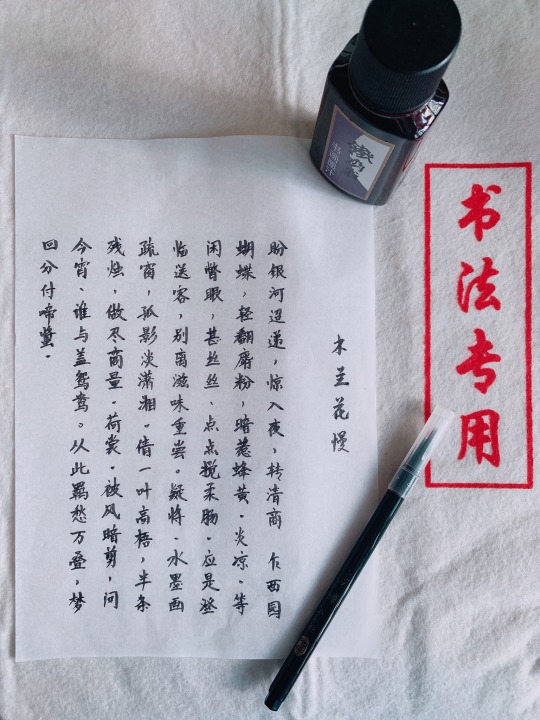 书法专用
木兰花慢
盼银河迢递，惊入夜，转清商 乍西园
蝴蝶，轻翻麝粉，暗惹蜂黄。炎凉。等
闲瞥眼，甚丝丝、点点搅柔肠。应是登
临送客，别离滋味重尝。疑将。水墨画
疏窗，孤影淡潇湘。倩一叶高梧，半条
残烛，做尽商量。荷裳。被风暗剪，问
今宵、谁与盖鸳鸯。从此羁愁万叠，梦
回分付啼螿。